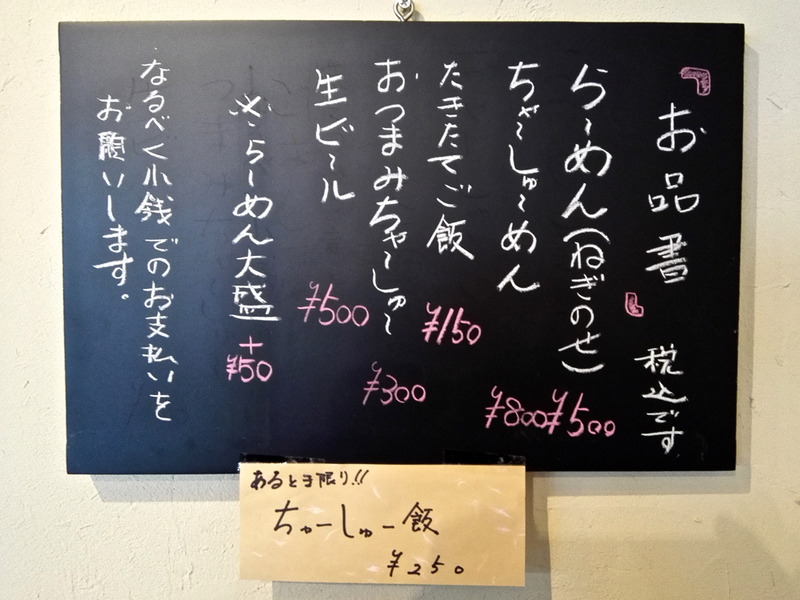 『お品書』税込です
らーめん(ねぎのせ) ¥500
ちゃーしゅーめん ¥800
たきたてご飯 ¥150
おつまみちゃーしゅー ¥300
生ビール ¥500
※らーめん大盛 +¥50
なるべく小銭でのお支払いを
お願いします。
あるとき限り!!
ちゃーしゅー飯
¥250